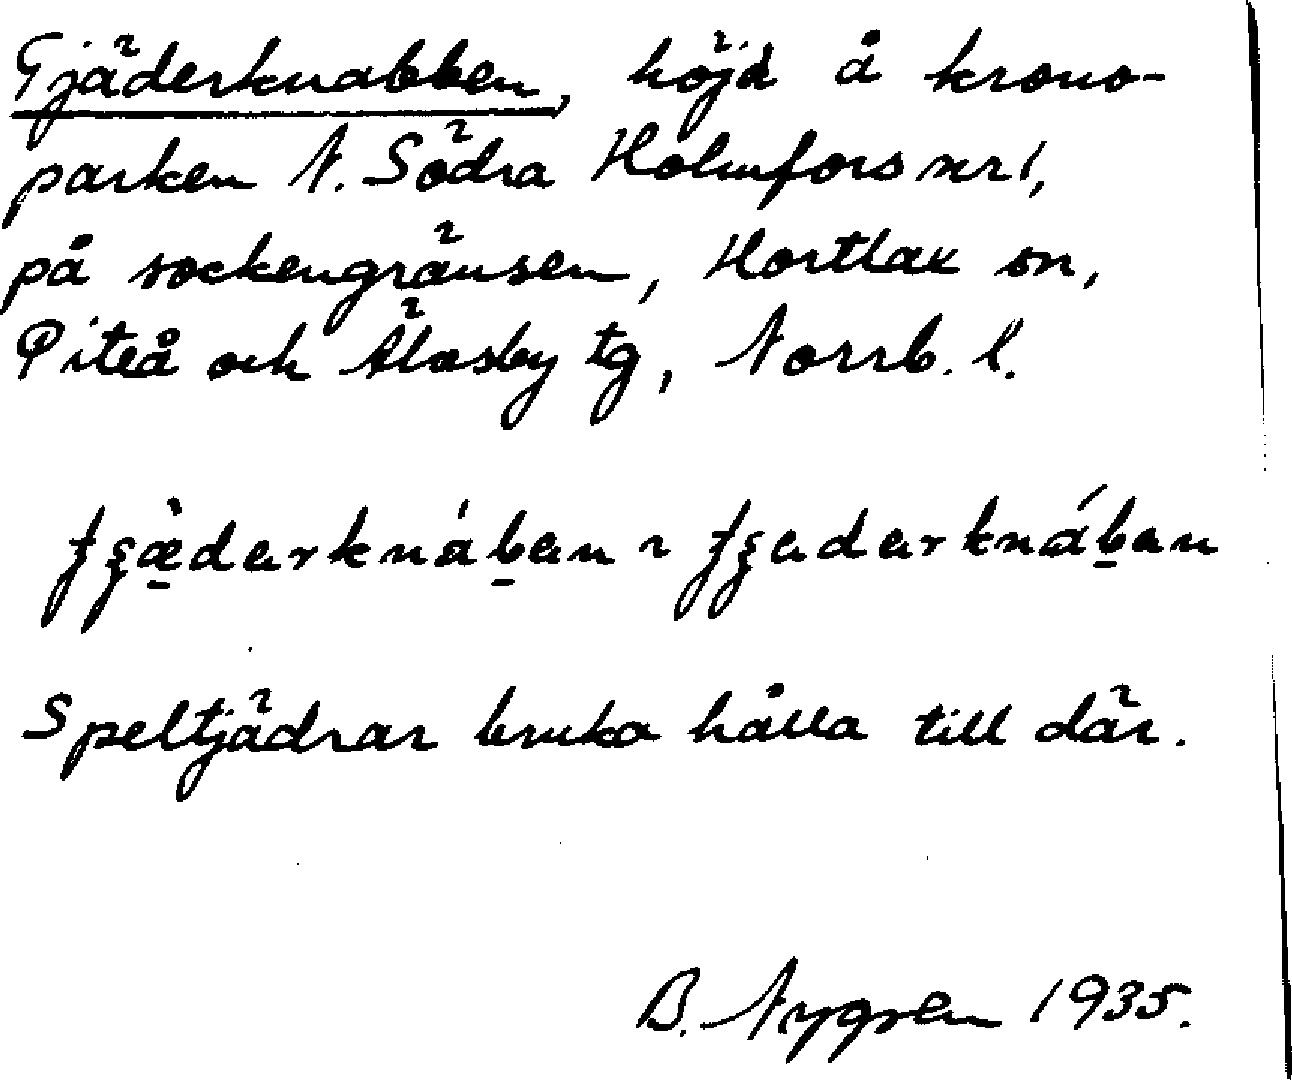 Tjäderknabben, höjd å krono-
parken N. Södra Holmfors nr 1,
på sockengränsen, Hortlax sn,
Piteå och Älvsby tg, Norrb. l.
Speltjädrar bruka hålla till där.
B. Nygren 1935.